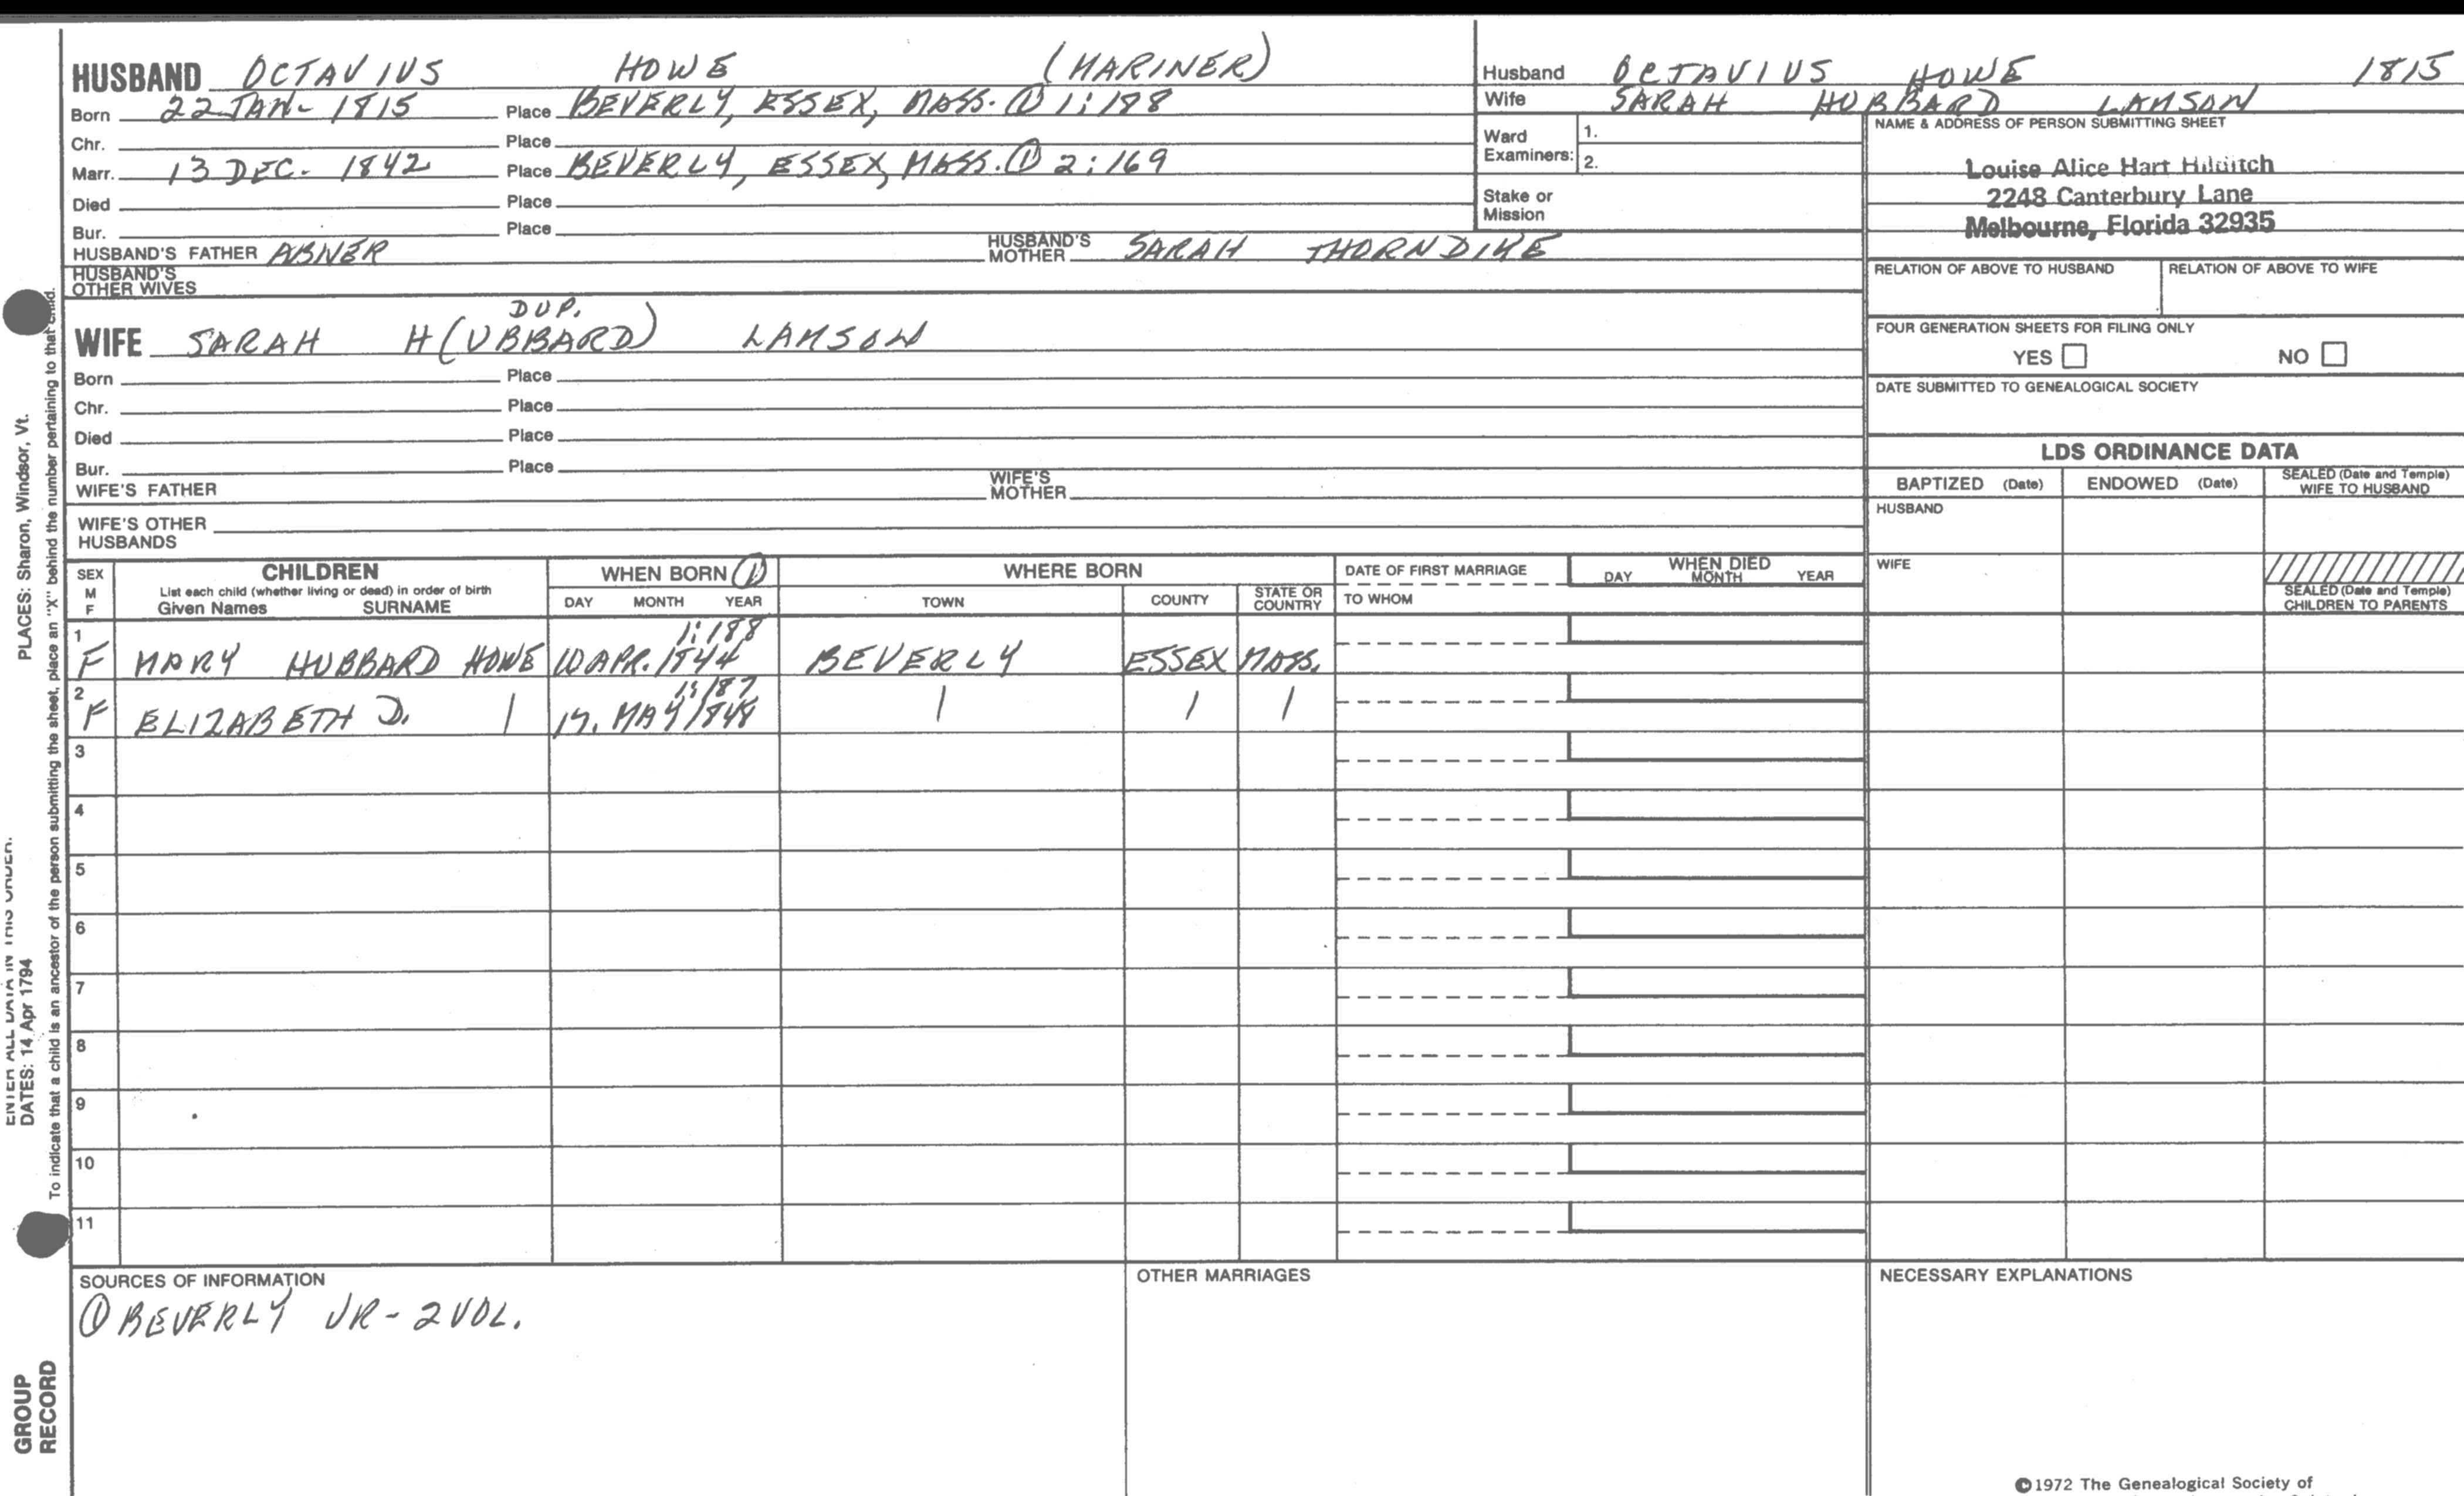 HUSBAND OCTAVIUS HOWE (MARINER)
Born 22 JAN- 1815 Place BEVERLY, ESSEX, MASS. ① 1:188
Chr. Place
Marr. 13 DEC. 1842 Place BEVERLY, ESSEX, MASS. ① 2:169
Died Place
Bur. Place
HUSBAND'S FATHER ABNER HUSBAND'S MOTHER SARAH THORNDIKE
HUSBAND'S OTHER WIVES
DUP.
WIFE SARAH H(UBBARD) LAMSON
Born Place
Chr. Place
Died Place
Bur. Place
WIFE'S FATHER WIFE'S MOTHER
WIFE'S OTHER HUSBANDS
Husband OCTAVIUS HOWE 1815
Wife SARAH HUBBARD LAMSON
Ward Examiners: 1.
2.
Stake or Mission
NAME & ADDRESS OF PERSON SUBMITTING SHEET
Louise Alice Hart Hilditch
2248 Canterbury Lane
Melbourne, Florida 32935
RELATION OF ABOVE TO HUSBAND RELATION OF ABOVE TO WIFE
FOUR GENERATION SHEETS FOR FILING ONLY
YES NO
DATE SUBMITTED TO GENEALOGICAL SOCIETY
LDS ORDINANCE DATA
BAPTIZED (Date) ENDOWED (Date) SEALED (Date and Temple) WIFE TO HUSBAND
HUSBAND
WIFE
SEALED (Date and Temple) CHILDREN TO PARENTS
SEX M F CHILDREN WHEN BORN ① WHERE BORN DATE OF FIRST MARRIAGE WHEN DIED
List each child (whether living or dead) in order of birth
Given Names SURNAME DAY MONTH YEAR TOWN COUNTY STATE OR COUNTRY TO WHOM DAY MONTH YEAR
1:188
1 F MARY HUBBARD HOWE 10 APR. 1844 BEVERLY ESSEX MASS.
1:187
2 F ELIZABETH D. | MAY 1848 | | |
3
4
5
6
7
8
9
10
11
SOURCES OF INFORMATION OTHER MARRIAGES NECESSARY EXPLANATIONS
① BEVERLY VR - 2 VOL.
©1972 The Genealogical Society of
PLACES: Sharon, Windsor, Vt.
ENTER ALL DATA IN THIS ORDER.
DATES: 14 Apr 1794
To indicate that a child is an ancestor of the person submitting the sheet, place an "X" behind the number pertaining to that child.
GROUP
RECORD